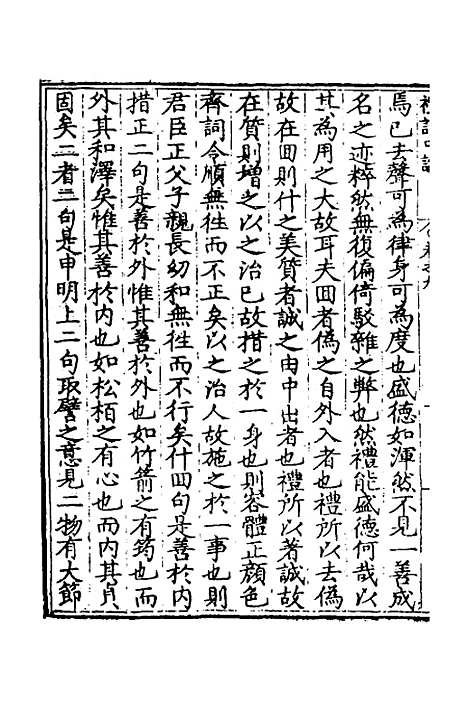 焉已夫聲可為律身可為度也盛德如渾然不見一善成
名之迹粹然無復偏倚駁雜之弊也然禮能盛德何哉以
其為用之大故耳夫回者偽之自外入者也禮所以去偽
故在回則什之美質者誠之由中出者也禮所以著誠故
在質則增之以之治已故措之於一身也則容體正顏色
齊詞令順無徃而不正矣以之治人故施之於一事也則
君臣正父子親長幼和無徃而不行矣什回句是善於内
措正二句是善於外惟其善於外也如竹箭之有筠也而
外其和澤矣惟其善於内也如松栢之有心也而内其貞
固矣二者二句是申明上二句取譬之意見二物有大節